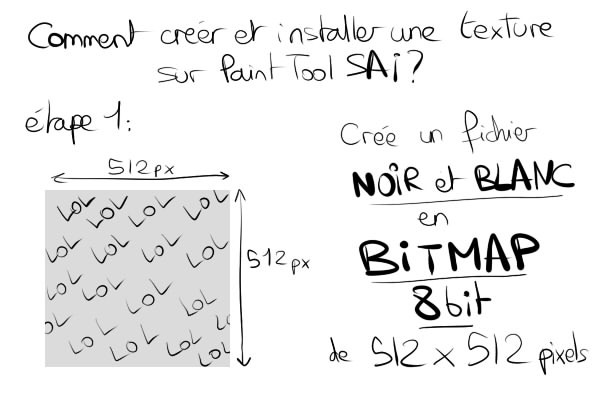 Comment créer et installer une texture
sur Paint Tool SAi ?
étape 1:
512 px
LOL LOL LOL LOL
LOL LOL LOL LOL
LOL LOL LOL LOL
OL LOL LOL LOL LO
LOL
512 px
Crée un fichier
NOiR et BLANC
en
BiTMAP
8bit
de 512 x 512 pixels